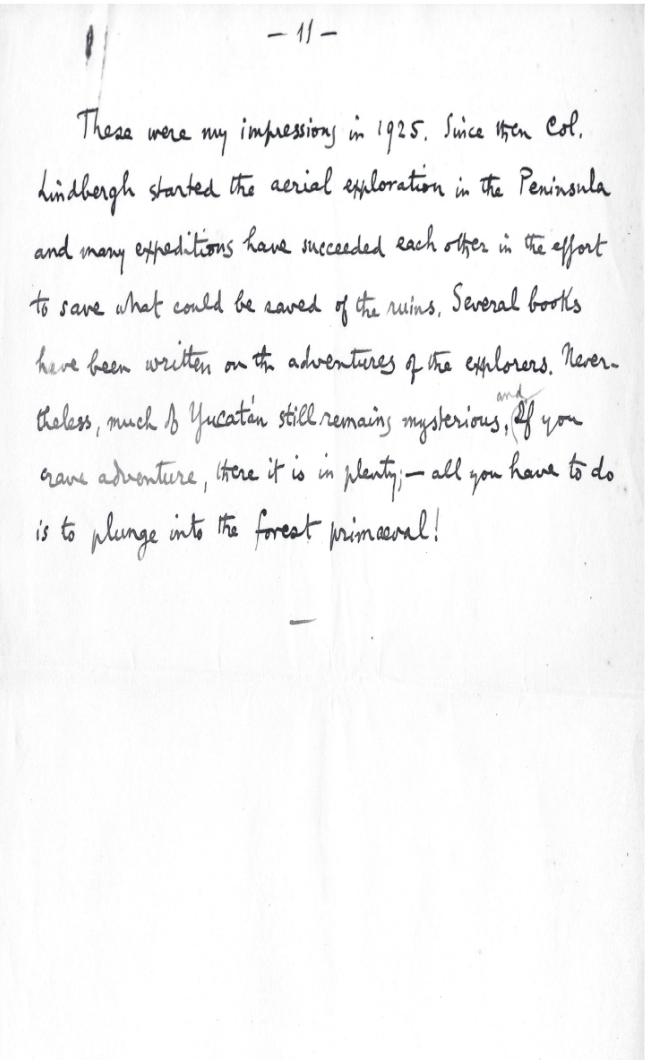 – 11 –
These were my impressions in 1925. Since then Col.
Lindbergh started the aerial exploration in the Peninsula
and many expeditions have succeeded each other in the effort
to save what could be saved of the ruins. Several books
have been written on the adventures of the explorers. Never-
theless, much of Yucatán still remains mysterious, and If you
crave adventure, there it is in plenty; – all you have to do
is to plunge into the forest primaeval!